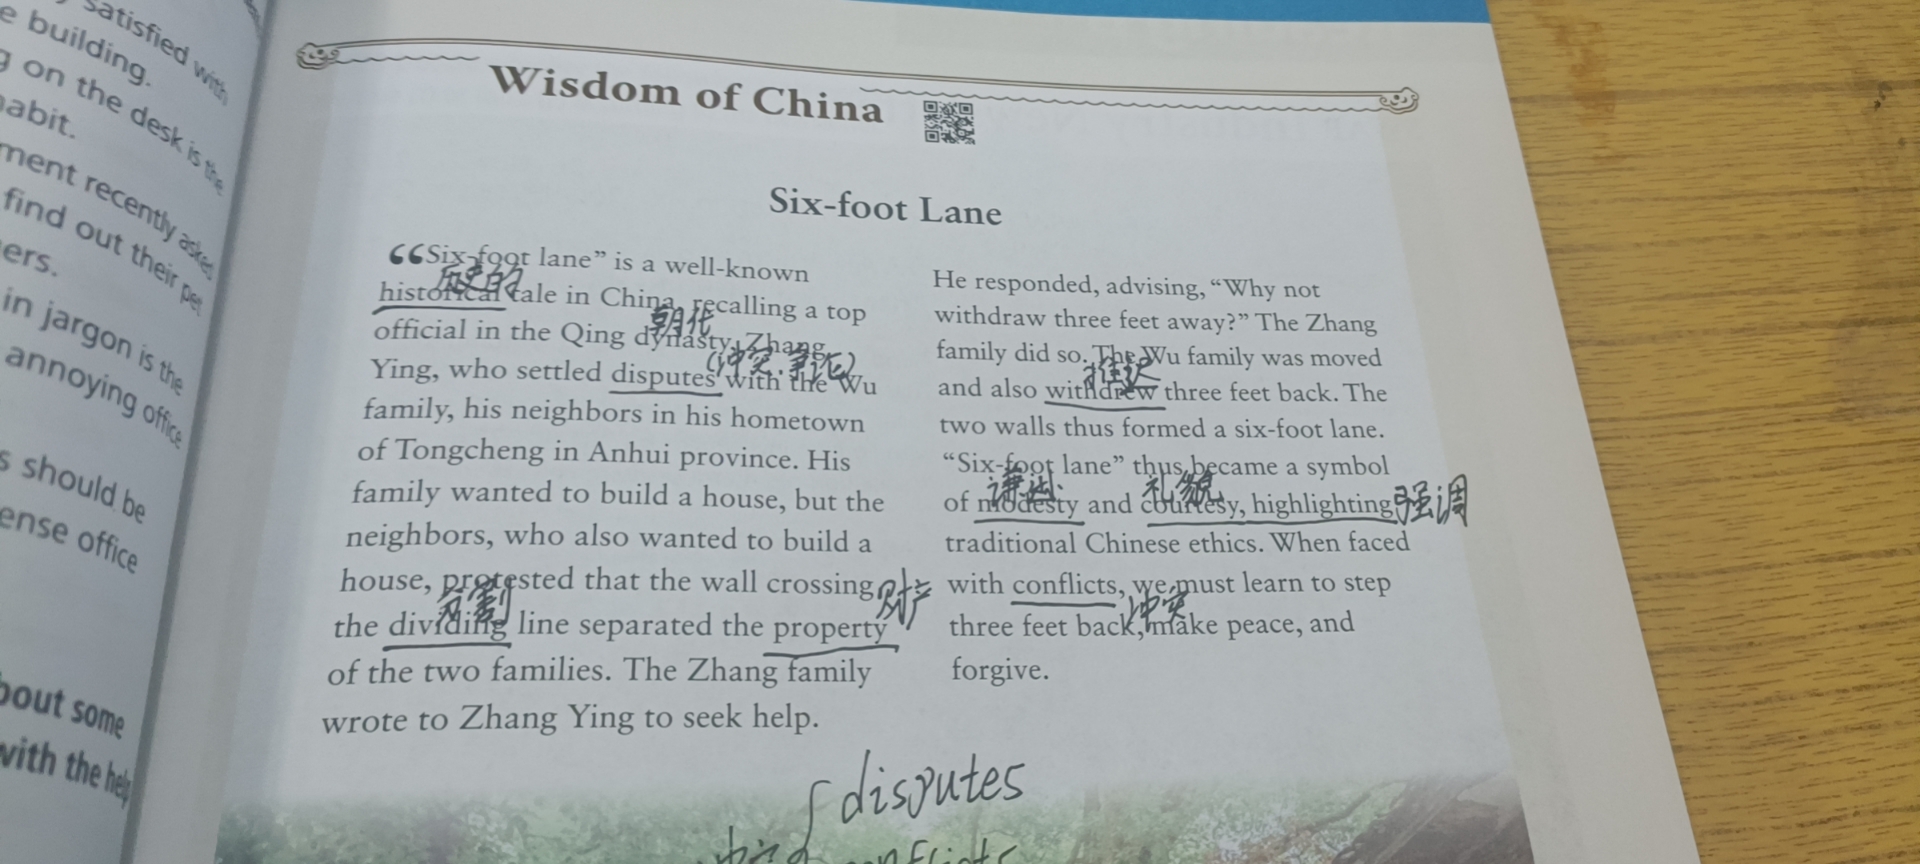 satisfied with
e building.
g on the desk is the
habit.
ment recently asked
find out their pet
ers.
in jargon is the
annoying office
s should be
ense office
bout some
with the help
Wisdom of China
Six-foot Lane
“Six-foot lane” is a well-known
历史的
historical tale in China, recalling a top
朝代
official in the Qing dynasty, Zhang
(冲突.争论)
Ying, who settled disputes with the Wu
family, his neighbors in his hometown
of Tongcheng in Anhui province. His
family wanted to build a house, but the
neighbors, who also wanted to build a
house, protested that the wall crossing
分割
财产
the dividing line separated the property
of the two families. The Zhang family
wrote to Zhang Ying to seek help.
He responded, advising, “Why not
withdraw three feet away?” The Zhang
family did so. The Wu family was moved
and also withdrew three feet back. The
two walls thus formed a six-foot lane.
“Six-foot lane” thus became a symbol
谦逊
礼貌
强调
of modesty and courtesy, highlighting
traditional Chinese ethics. When faced
with conflicts, we must learn to step
冲突
three feet back, make peace, and
forgive.
disputes
conflicts